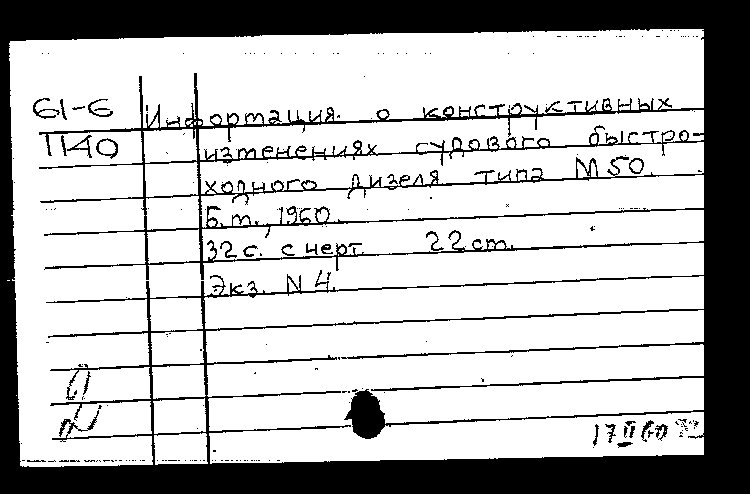 61-6
1140
Информация о конструктивных
изменениях судового быстро-
ходного дизеля типа М50.
Б.м., 1960.
32с. с черт. 22 см.
Экз. N 4.
17 II 60